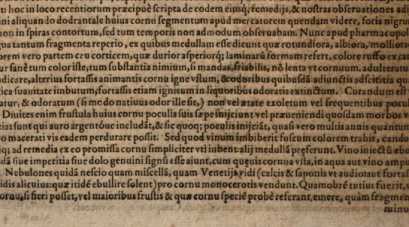 in hoc in loco recentiorum præcipuè scripta de eodem eiusq́; remedijs, & nostras obseruationes ad
aliquando dodrantale huius cornu segmentum apud mercatorem quendam videre, socij nigru
non in spiras contortum, sed tum temporis non admodum obseruabam. Nunc apud pharmacopol
tantum fragmenta reperio, ex quibus medullam esse dicunt quæ rotundiora, albiora, mollior
rem verò partem ceu corticem, quæ durior asperiorq́; laminarum formam refert, colore russo ex
sanè tum colore ille, tum substantia nimium, si mandas, friabili, nō lenta vt cornuum, adulter
dicere, alterius fortassis animantis cornu igne vstum, & odoribus quibusdā adiunctis
suauitate imbutum, fortassis etiam ignitum in liquoribus odoratis extinctum. Curandum est
& odoratum (si modo natiuus odor ille sit,) non vel ætate exoletum vel frequentibus pocul
Diuites enim frustula huius cornu poculis suis sæpe inijciunt vel præueniendi quosdam morbos
sunt qui auro argentóue includūt, & sic quoq; poculis inijciūt, quasi vero multis annis quantum
macerati vis eadem perdurare possit. Sed quod vinum imbiberit fuscum colorem trahit, candid
ad remedia ex eo promissa cornu simpliciter vti iubent alij medullā præferunt. Vino iniectū
siue imperitia siue dolo genuini signū esse aiunt, cum quæuis cornua vsta, in aqua aut vino amp
Nebulones quidā nescio quam miscellā, quam Venetijs vidi (calcis & saponis vt audio aut fortass
alicuius: quæ itidē ebullire solent) pro cornu monocerotis vendunt. Quamobrē tutius fuerit,
si fieri posset, vel maioribus frustis & quæ cornu speciē probè referant, emere, quàm fragment